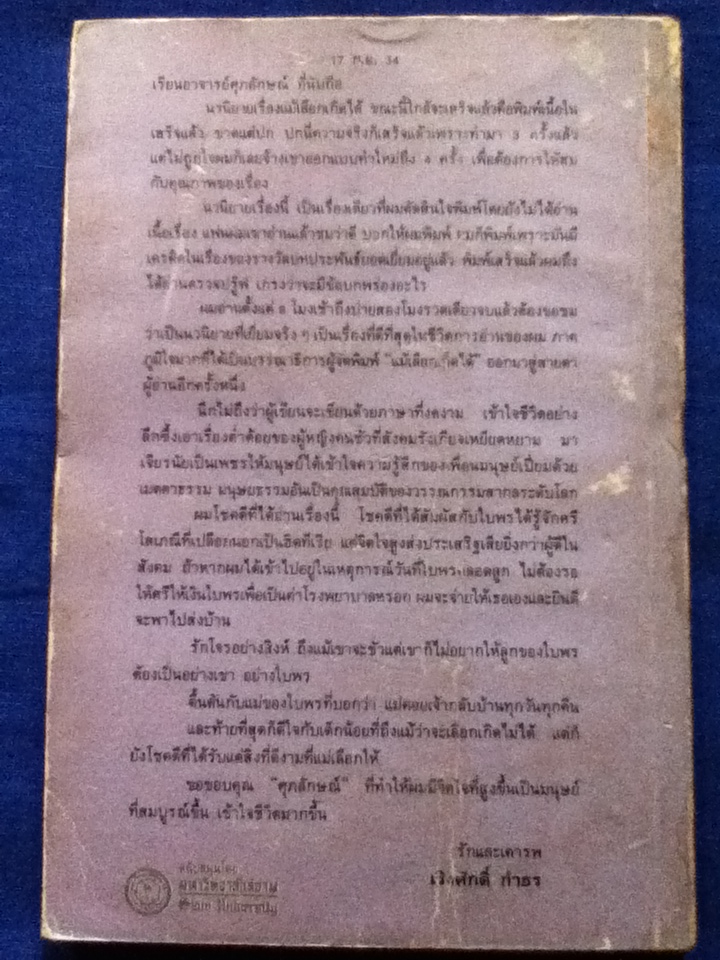 17 พ.ย. 34
เรียนอาจารย์ศุภลักษณ์ ที่นับถือ
นวนิยายเรื่องแม้เลือกเกิดได้ ขณะนี้ใกล้จะเสร็จแล้วคือพิมพ์เนื้อใน
เสร็จแล้ว ขาดแต่ปก ปกนี่ความจริงก็เสร็จแล้วเพราะทำมา 3 ครั้งแล้ว
แต่ไม่ถูกใจผมก็เลยจ้างเขาออกแบบทำใหม่ถึง 4 ครั้ง เพื่อต้องการให้สม
กับคุณภาพของเรื่อง
นวนิยายเรื่องนี้ เป็นเรื่องเดียวที่ผมตัดสินใจพิมพ์โดยยังไม่ได้อ่าน
เนื้อเรื่อง แฟนผมเขาอ่านแล้วชมว่าดี บอกให้ผมพิมพ์ ผมก็พิมพ์เพราะมันมี
เครดิตในเรื่องของรางวัลบทประพันธ์ยอดเยี่ยมอยู่แล้ว พิมพ์เสร็จแล้วผมถึง
ได้อ่านตรวจปรู๊ฟ เกรงว่าจะมีข้อบกพร่องอะไร
ผมอ่านตั้งแต่ 8 โมงเช้าถึงบ่ายสองโมงรวดเดียวจบแล้วต้องขอชม
ว่าเป็นนวนิยายที่เยี่ยมจริง ๆ เป็นเรื่องที่ดีที่สุดในชีวิตการอ่านของผม ภาค
ภูมิใจมากที่ได้เป็นบรรณาธิการผู้จัดพิมพ์ "แม้เลือกเกิดได้" ออกมาสู่สายตา
ผู้อ่านอีกครั้งหนึ่ง
นึกไม่ถึงว่าผู้เขียนจะเขียนด้วยภาษาที่งดงาม เข้าใจชีวิตอย่าง
ลึกซึ้งเอาเรื่องต่ำต้อยของผู้หญิงคนชั่วที่สังคมรังเกียจเหยียดหยาม มา
เจียรนัยเป็นเพชรให้มนุษย์ได้เข้าใจความรู้สึกของเพื่อนมนุษย์เปี่ยมด้วย
เมตตาธรรม มนุษยธรรมอันเป็นคุณสมบัติของวรรณกรรมสากลระดับโลก
ผมโชคดีที่ได้อ่านเรื่องนี้ โชคดีที่ได้สัมผัสกับใบพรได้รู้จักศรี
โสเภณีที่เปลือกนอกเป็นฮิสทีเรีย แต่จิตใจสูงส่งประเสริฐเสียยิ่งกว่าผู้ดีใน
สังคม ถ้าหากผมได้เข้าไปอยู่ในเหตุการณ์วันที่ใบพรคลอดลูก ไม่ต้องรอ
ให้ศรีให้เงินใบพรเพื่อเป็นค่าโรงพยาบาลหรอก ผมจะจ่ายให้เธอเองและยินดี
จะพาไปส่งบ้าน
รักโจรอย่างสิงห์ ถึงแม้เขาจะชั่วแต่เขาก็ไม่อยากให้ลูกของใบพร
ต้องเป็นอย่างเขา อย่างใบพร
ตื้นตันกับแม่ของใบพรที่บอกว่า แม่คอยเจ้ากลับบ้านทุกวันทุกคืน
และท้ายที่สุดก็ดีใจกับเด็กน้อยที่ถึงแม้ว่าจะเลือกเกิดไม่ได้ แต่ก็
ยังโชคดีที่ได้รับแต่สิ่งที่ดีงามที่แม่เลือกให้
ขอขอบคุณ "ศุภลักษณ์" ที่ทำให้ผมมีจิตใจที่สูงขึ้นเป็นมนุษย์
ที่สมบูรณ์ขึ้น เข้าใจชีวิตมากขึ้น
รักและเคารพ
เริงศักดิ์ กำธร
สนับสนุนโดย